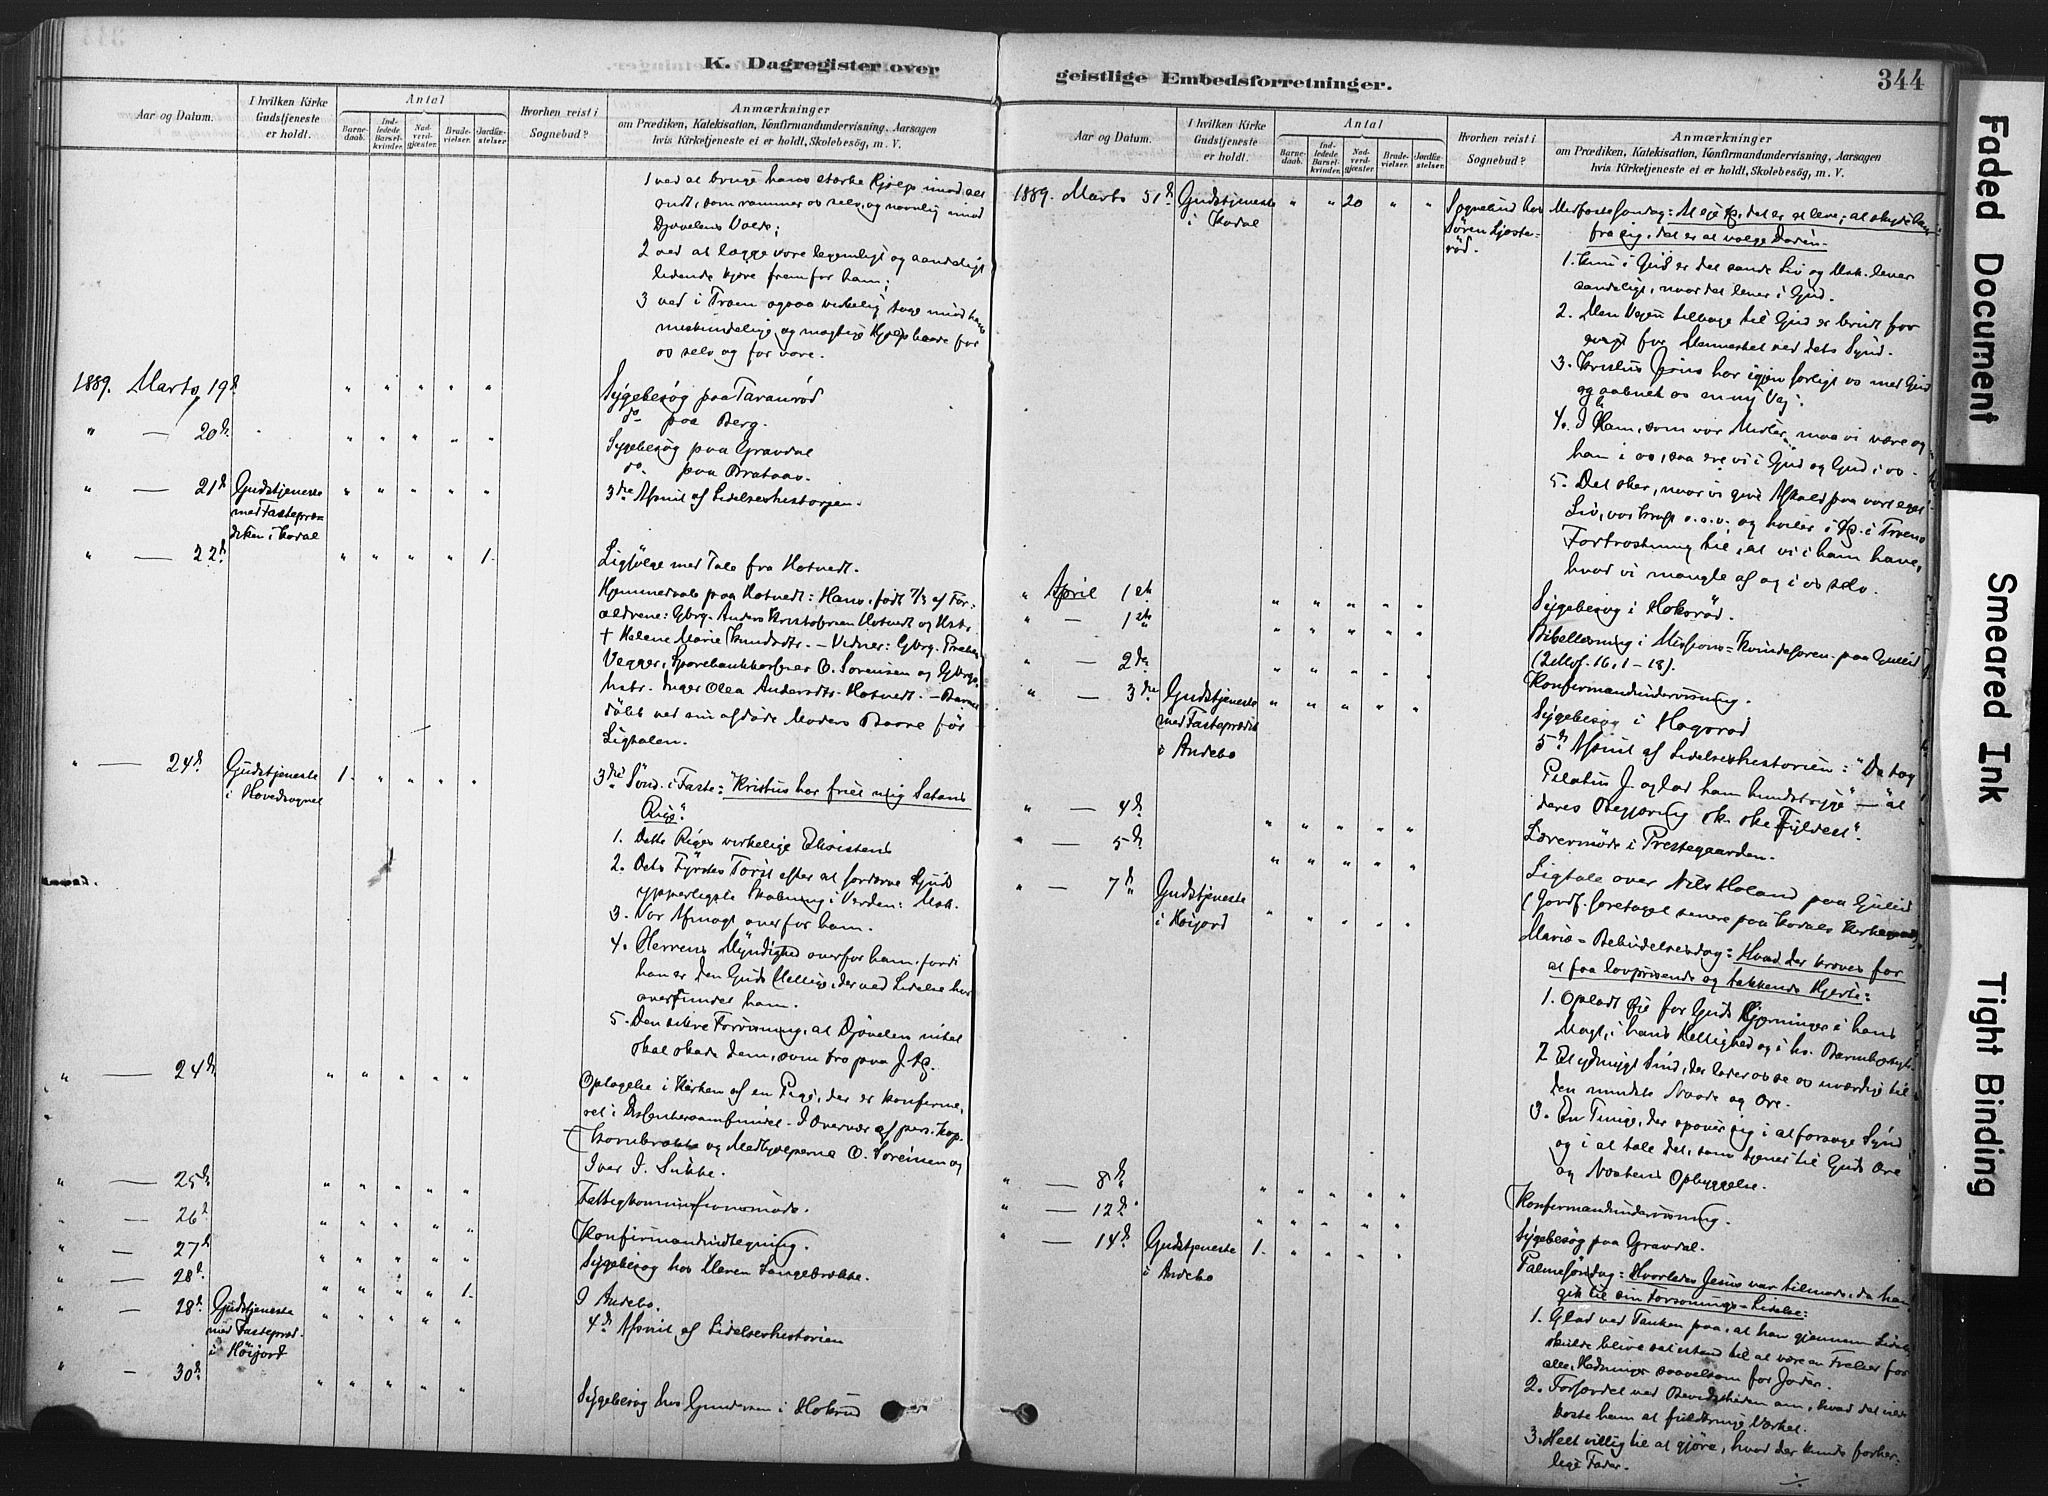 K. Dagregister over geistlige Embedsforretninger.
344
Aar og Datum.
I hvilken Kirke
Gudstjeneste
er holdt.
Antal
Barne-
daab.
Ind-
ledede
Barsel-
kvinder.
Nad-
verd-
gjæster.
Brude-
vielser.
Jordfæ-
stelser.
Hvorhen reist i
Sognebud?
Anmærkninger
om Prædiken, Katekisation, Konfirmandundervisning, Aarsagen
hvis Kirketjeneste ei er holdt, Skolebesøg, m. V.
1 ved at bruge hans stærke Hjælp imod alt
ondt, som rammer os selv, og navnlig imod
Djævelens Vold;
2 ved at lægge vore legemligt og aandeligt
lidende kjære frem for ham;
3 ved i Troen ogsaa virkelig tage imod hans
miskundelige og mægtige Hjælp baade for
os selv og for vore.
1889. Marts 19d " " " " " Sygebesøg paa Taranrød
do paa Berg.
" — 20d " " " " " Sygebesøg paa Gravdal
do paa Brataas.
" — 21d Gudstjeneste
med Fastepræ-
diken i Kodal " " " " " 3die Afsnit af Lidelseshistorjen.
" — 22d " " " " 1. Ligfølge med Tale fra Hotvedt.
Hjemmedaab paa Hotvedt: Hans, født 7/3 af For-
ældrene: Gbrg. Anders Kristofersen Hotvedt og Hstr.
+ Helene Marie Knudsdtr. — Vidner: Gbrg. Preben
Vegger, Sparebankkasserer O. Sørensen og Gbrgs.
hstr. Inger Olea Andersdtr. Hotvedt. — Barnet
døbt ved sin afdøde Moders Baare før
Ligtalen.
" — 24d Gudstjeneste
i Hovedsognet 1. " " " " 3die Sønd. i Faste: "Kristus har friet mig Satans
Rige".
1. Dette Riges virkelige Eksistens
2. Dets Fyrstes Tørst efter at fordærve Guds
ypperligste Skabning i Verden: Msk.
3. Vor Afmagt overfor ham.
4. Herrens Myndighed overfor ham, fordi
han er den Guds Hellige, der ved Lidelse har
overvundet ham.
5. Den sikre Forvisning, at Djævelen intet
skal skade dem, som tro paa J. Kr.
" — 24d " " " " " Optagelse i Kirken af en Pige, der er konfirme-
ret i Dissentersamfundet. I Overvær af pers. Kap.
Kornbrække og Medhjælperne O. Sørensen og
Iver J. Sukke.
" — 25d " " " " " Fattigkommissionsmøde.
" — 26d " " " " " Konfirmandindtegning.
" — 27d " " " " " Sygebesøg hos Maren Langebrække.
" — 28d " " " " 1. I Andebo.
" — 28d Gudstjeneste
med Fastepræd.
i Høijord " " " " " 4d Afsnit af Lidelseshistorien
" — 30d " " " " " Sygebesøg hos Gundersen i Hokrud
Aar og Datum.
I hvilken Kirke
Gudstjeneste
er holdt.
Antal
Barne-
daab.
Ind-
ledede
Barsel-
kvinder.
Nad-
verd-
gjæster.
Brude-
vielser.
Jordfæ-
stelser.
Hvorhen reist i
Sognebud?
Anmærkninger
om Prædiken, Katekisation, Konfirmandundervisning, Aarsagen
hvis Kirketjeneste ei er holdt, Skolebesøg, m. V.
1889. Marts 31d Gudstjeneste
i Kodal " " 20 " " Sognebud hos
Søren Ljøste-
rød.
Midfastesøndag: At eje Kr., det er at leve; at skyde ham
fra sig, det er at vælge Døden.
1. Kun i Gud er det sande Liv og Msk. lever
aandeligt, naar det lever i Gud.
2. Men Vejen tilbage til Gud er brudt for
evigt for Mennesket ved dets Synd.
3. Kristus Jesus har igjen forligt os med Gud
og aabnet os en ny Vej.
4. I Ham, som vor Midler, maa vi være og
ham i os, saa ere vi i Gud og Gud i os.
5. Det sker, naar vi give Afkald paa vort eget
Liv, vor Kraft o.s.v. og hviler i Kr. i Troens
Fortrøstning til, at vi i ham have,
hvad vi mangle af og i os selv.
" April 1ste " " " " " Sygebesøg i Hokerød.
" — 1ste " " " " " Bibellæsning i Missions-Kvindeforen. paa Gulid
(2 Mos. 16, 1–18).
" — 2den " " " " " Konfirmandundervisning.
" — 3die Gudstjeneste
med Fasteprædik.
i Andebo " " " " " Sygebesøg i Hagerød
5te Afsnit af Lidelseshistorien: "Da tog
Pilatus J. og lod ham hudstryge" — "at
deres Begjæring sk. ske Fyldest".
" — 4d " " " " " Lærermøde i Prestegaarden.
" — 5d " " " " " Ligtale over Nils Holand paa Gulid
(Jordf. foretaget senere paa Kodals Kirkegaard)
" — 7d Gudstjeneste
i Høijord " " " " " Mariæ-Bebudelsesdag: Hvad der kræves for
at faa lovprisende og takkende Hjerte:
1. Opladt Øje for Guds Gjerninger i hans
Magt, i hans Hellighed og i hs. Barmhjertigh.
2 Et ydmygt Sind, der lader os se os uværdige til
den mindste Naade og Ære.
3. En Tunge, der øver sig i at forsage Synd
og i at tale det, som tjener til Guds Ære
og Næstens Opbyggelse.
" — 8d " " " " " Konfirmandundervisning.
" — 12d " " " " " Sygebesøg paa Gravdal.
" — 14d Gudstjeneste
i Andebo 1. " " " " Palmesøndag: Hvorledes Jesus var tilmode, da han
gik til sin Forsonings-Lidelse:
1. Glad ved Tanken paa, at han gjennem Lidelse
skulde blive sat istand til at være en Frelser for
alle, Hedninger saavelsom for Jøder.
2. Forfærdet ved Bevidstheden om, hvad det vilde
koste ham at fuldbringe Værket.
3. Helt villig til at gjøre, hvad der kunde forher-
lige Fader.
Faded Document
Smeared Ink
Tight Binding